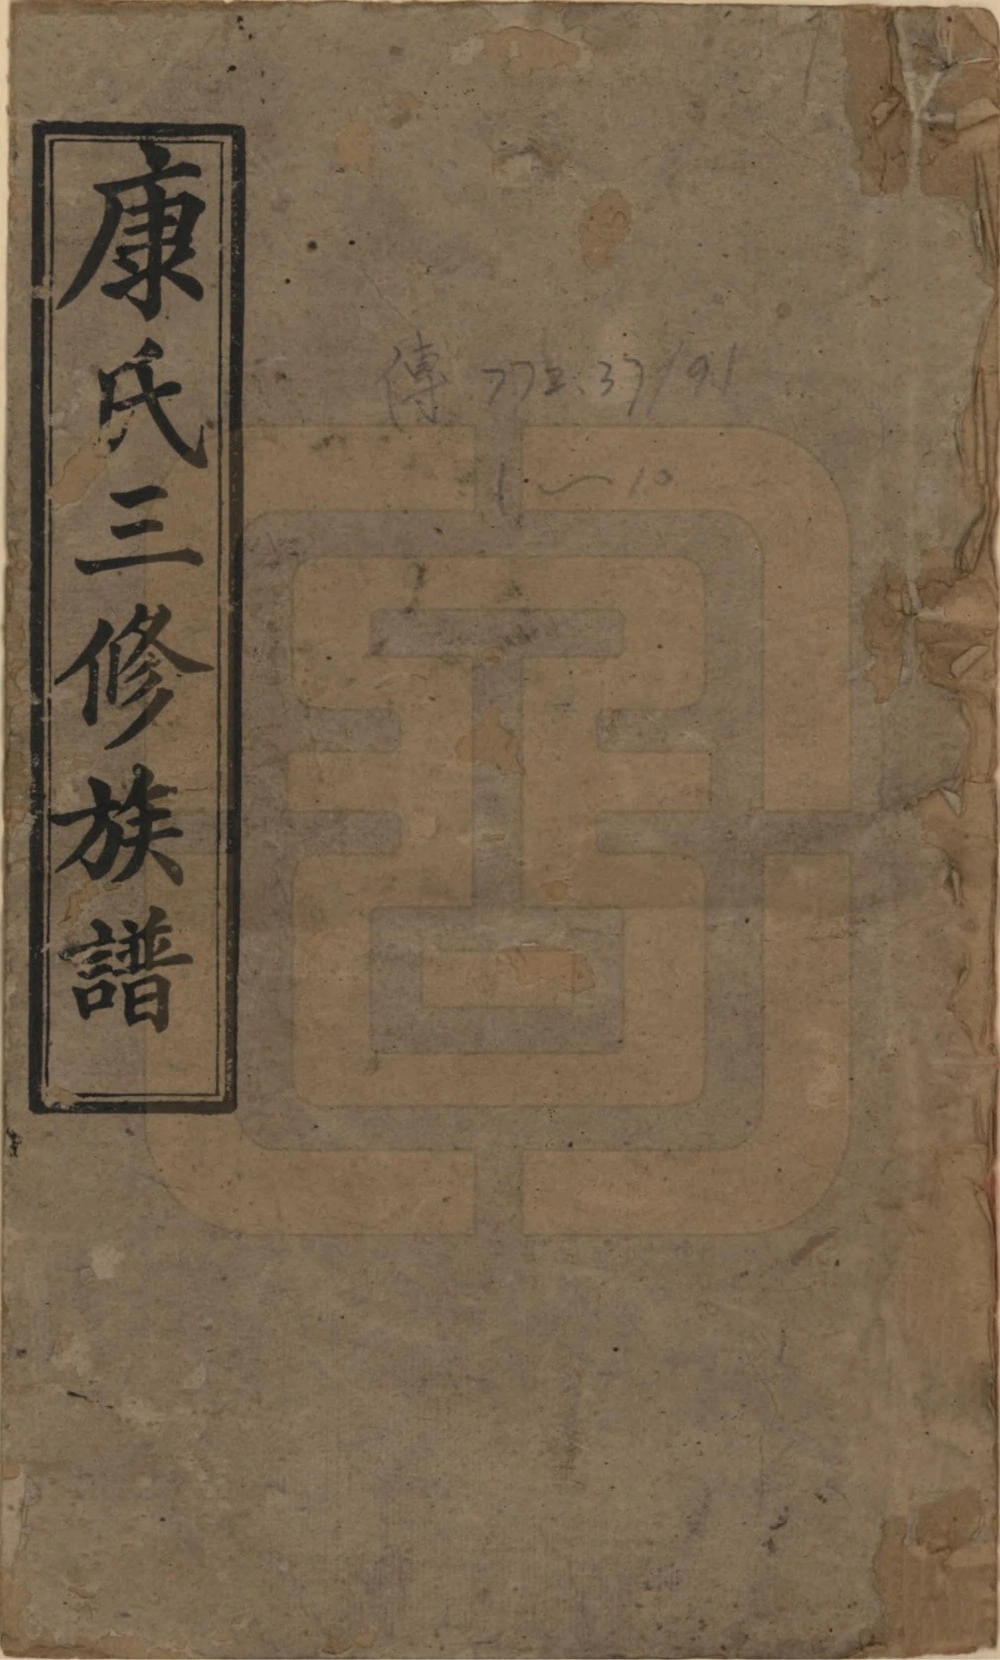 康氏三修族譜
傳 772.37/91
1～10